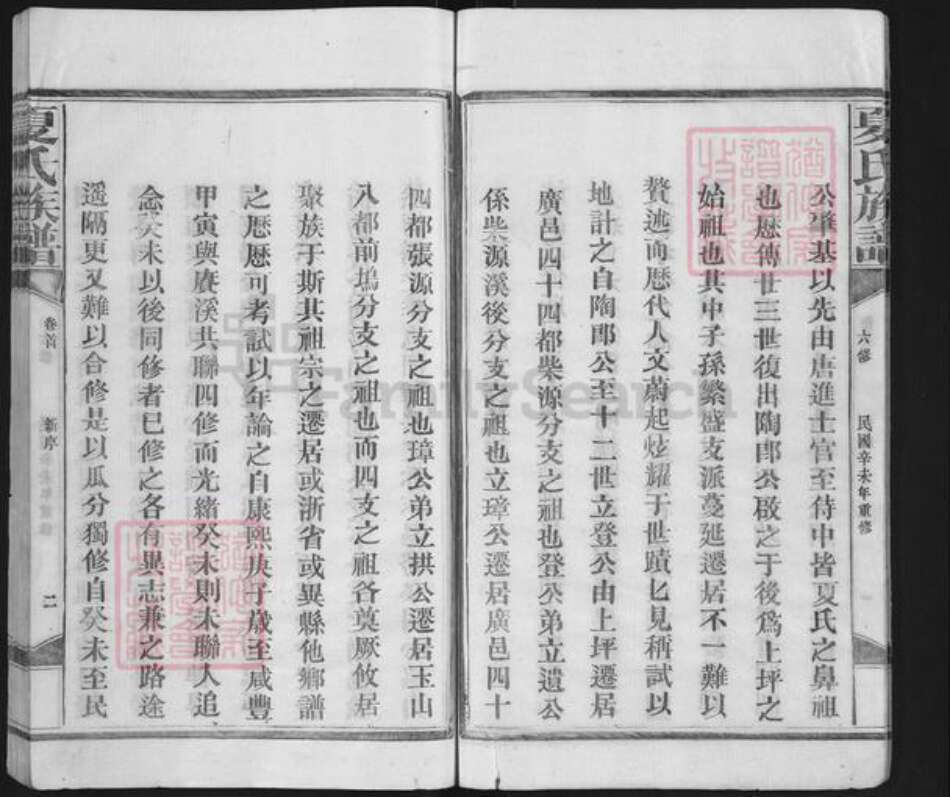 夏氏族譜
六修
民國辛未年重修
公肇基以先由唐進士官至侍中皆夏氏之鼻祖
也歷傳廿三世復出陶郎公啟之于後爲上坪之
始祖也其中子孫繁盛支派蔓延遷居不一難以
贅述而歷代人文蔚起炫耀于世蹟匕見稱試以
地計之自陶郎公至十二世立登公由上坪遷居
廣邑四十四都柴源分支之祖也登公弟立遺公
係柴源溪後分支之祖也立璋公遷居廣邑四十
四都張源分支之祖也璋公弟立拱公遷居玉山
八都前塢分支之祖也而四支之祖各奠厥攸居
聚族于斯其祖宗之遷居或浙省或異縣他鄉譜
之歷歷可考試以年論之自康熙庚子歲至咸豐
甲寅與賡溪共聯四修而光緒癸未則未聯人追
念癸未以後同修者已修之各有異志兼之路途
遥隔更又難以合修是以瓜分獨修自癸未至民
夏氏族譜
卷首
新序
二
FamilySearch